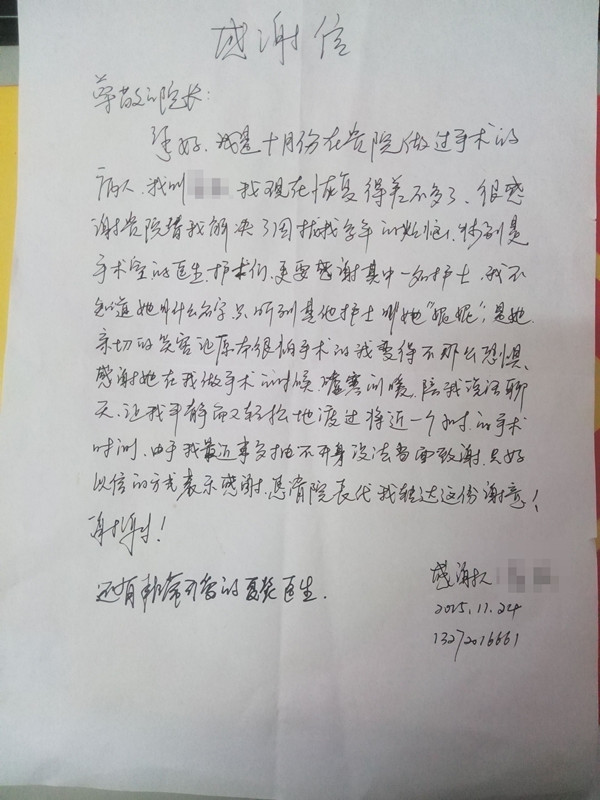 感谢信
尊敬的院长:
您好、我是十月份在贵院做过手术的
病人、我叫 我现在恢复得差不多了、很感
谢贵院替我解决了困扰我多年的烦恼、特别是
手术室的医生、护士们、更要感谢其中一名护士、我不
知道她叫什么名字只听到其他护士叫她"妮妮",是她
亲切的笑容让原本很怕手术的我变得不那么恐惧、
感谢她在我做手术的时候嘘寒问暖、陪我说话聊
天、让我平静而又轻松地渡过将近一个小时的手术
时间、由于我最近事多抽不开身没法当面致谢、只好
以信的方式表示感谢、恳请院长代我转达这份谢意!
谢谢!
还有 的 医生.
感谢人
2015.11.24
13272016661